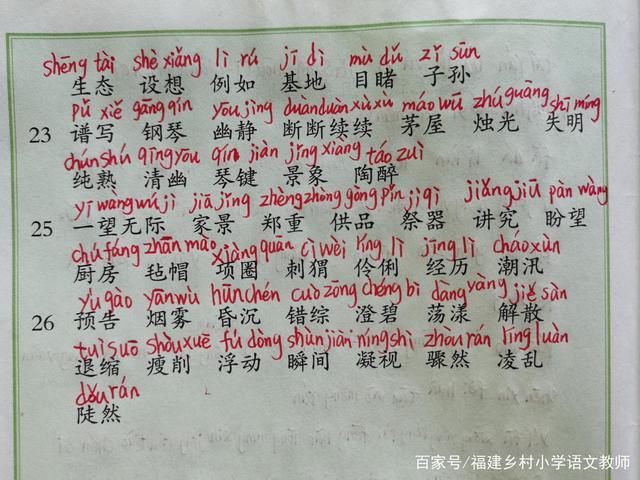 shēng tài shè xiǎng lì rú jī dì mù dǔ zǐ sūn
生态 设想 例如 基地 目睹 子孙
pǔ xiě gāng qín yōu jìng duàn duàn xù xù máo wū zhú guāng shī míng
23 谱写 钢琴 幽静 断断续续 茅屋 烛光 失明
chún shú qīng yōu qín jiàn jǐng xiàng táo zuì
纯熟 清幽 琴键 景象 陶醉
yī wàng wú jì jiā jǐng zhèng zhòng gòng pǐn jì qì jiǎng jiū pàn wàng
25 一望无际 家景 郑重 供品 祭器 讲究 盼望
chú fáng zhān mào xiàng quān cì wèi líng lì jīng lì cháo xùn
厨房 毡帽 项圈 刺猬 伶俐 经历 潮汛
yù gào yān wù hūn chén cuò zōng chéng bì dàng yàng jiě sàn
26 预告 烟雾 昏沉 错综 澄碧 荡漾 解散
tuì suō shòu xuē fú dòng shùn jiān níng shì zhòu rán líng luàn
退缩 瘦削 浮动 瞬间 凝视 骤然 凌乱
dǒu rán
陡然
百家号/福建乡村小学语文教师